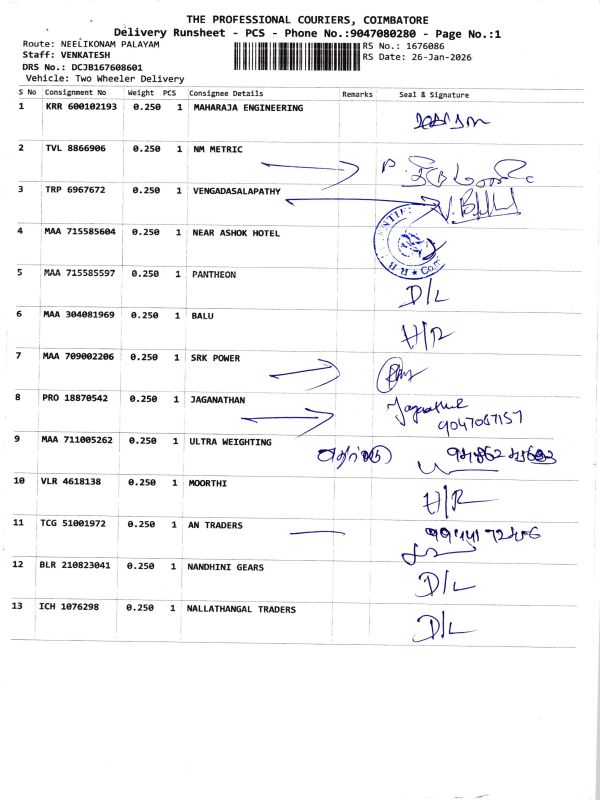 THE PROFESSIONAL COURIERS, COIMBATORE
Delivery Runsheet - PCS - Phone No.:9047080280 - Page No.:1
Route: NEELIKONAM PALAYAM
RS No.: 1676086
Staff: VENKATESH
RS Date: 26-Jan-2026
DRS No.: DCJB167608601
Vehicle: Two Wheeler Delivery
S No Consignment No Weight PCS Consignee Details Remarks Seal & Signature
1 KRR 600102193 0.250 1 MAHARAJA ENGINEERING
2 TVL 8866906 0.250 1 NM METRIC
3 TRP 6967672 0.250 1 VENGADASALAPATHY
4 MAA 715585604 0.250 1 NEAR ASHOK HOTEL
5 MAA 715585597 0.250 1 PANTHEON D/L
6 MAA 304081969 0.250 1 BALU H/R
7 MAA 709002206 0.250 1 SRK POWER
8 PRO 18870542 0.250 1 JAGANATHAN Jaganathan
9047067157
9 MAA 711005262 0.250 1 ULTRA WEIGHTING
10 VLR 4618138 0.250 1 MOORTHI H/R
11 TCG 51001972 0.250 1 AN TRADERS
12 BLR 210823041 0.250 1 NANDHINI GEARS D/L
13 ICH 1076298 0.250 1 NALLATHANGAL TRADERS D/L